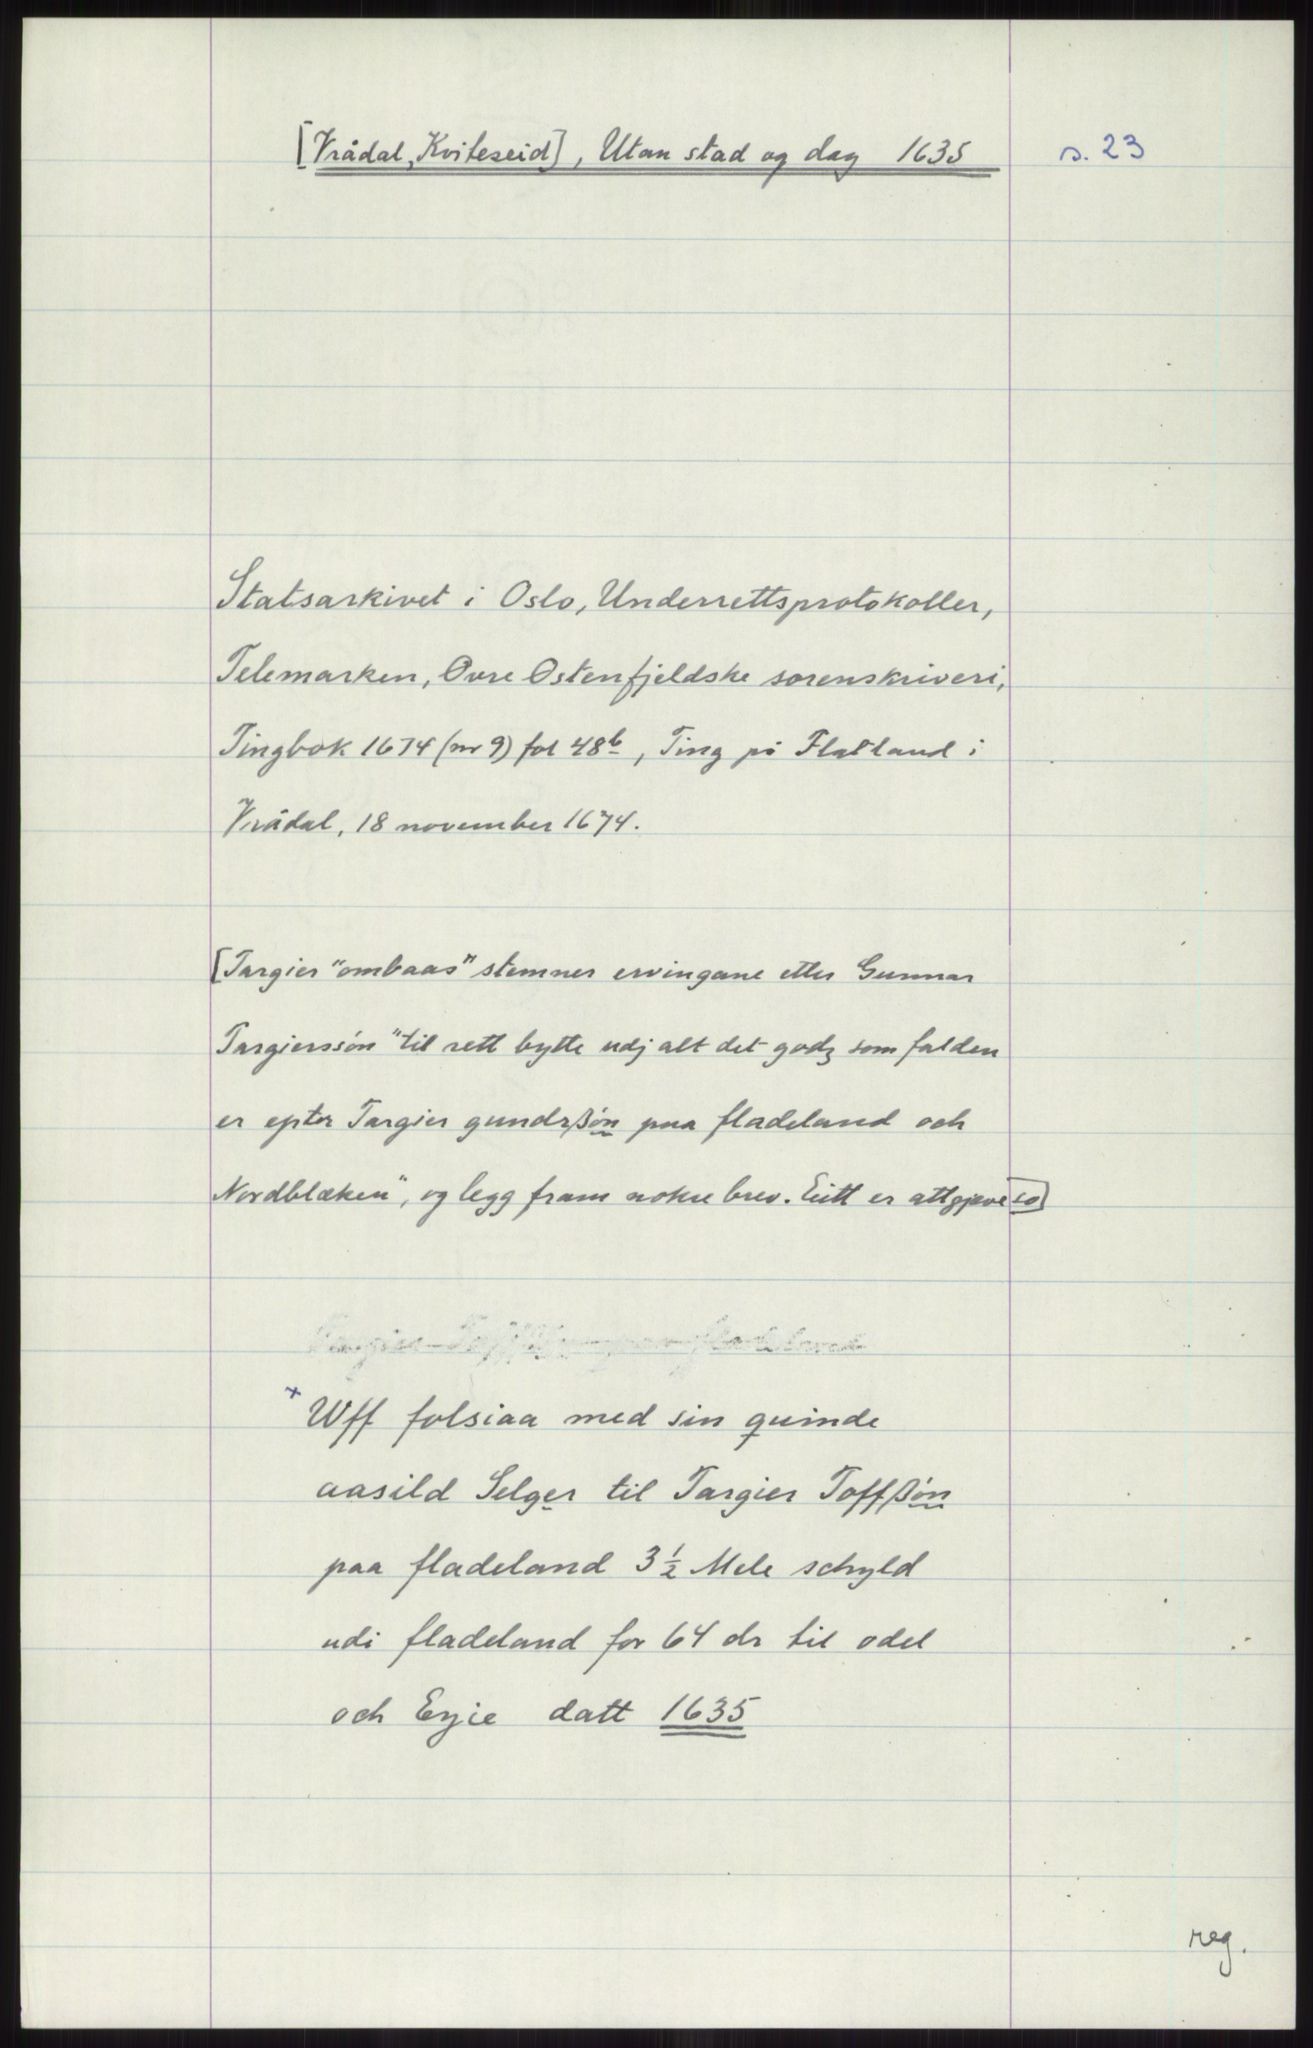 [Vrådal, Kviteseid], Utan stad og dag 1635
s. 23
Statsarkivet i Oslo, Underrettsprotokoller,
Telemarken, Øvre Østenfjeldske sorenskriveri,
Tingbok 1674 (nr 9) fol 48b, Ting på Flatland i
Vrådal, 18 november 1674.
[Targier "ombaas" stemner ervingane etter Gunnar
Targierssøn "til rett bytte udj alt det godz som falden
er epter Targier gundsßøn paa fladeland och
Nordbleken", og legg fram nokre brev. Eitt er attgjeve so]
x Wff folsiaa med sin quinde
aasild Selger til Targier Toffßøn
paa fladeland 3 1/2 Mele schyld
udi fladeland for 64 dr til odel
och Eyie datt 1635
reg.